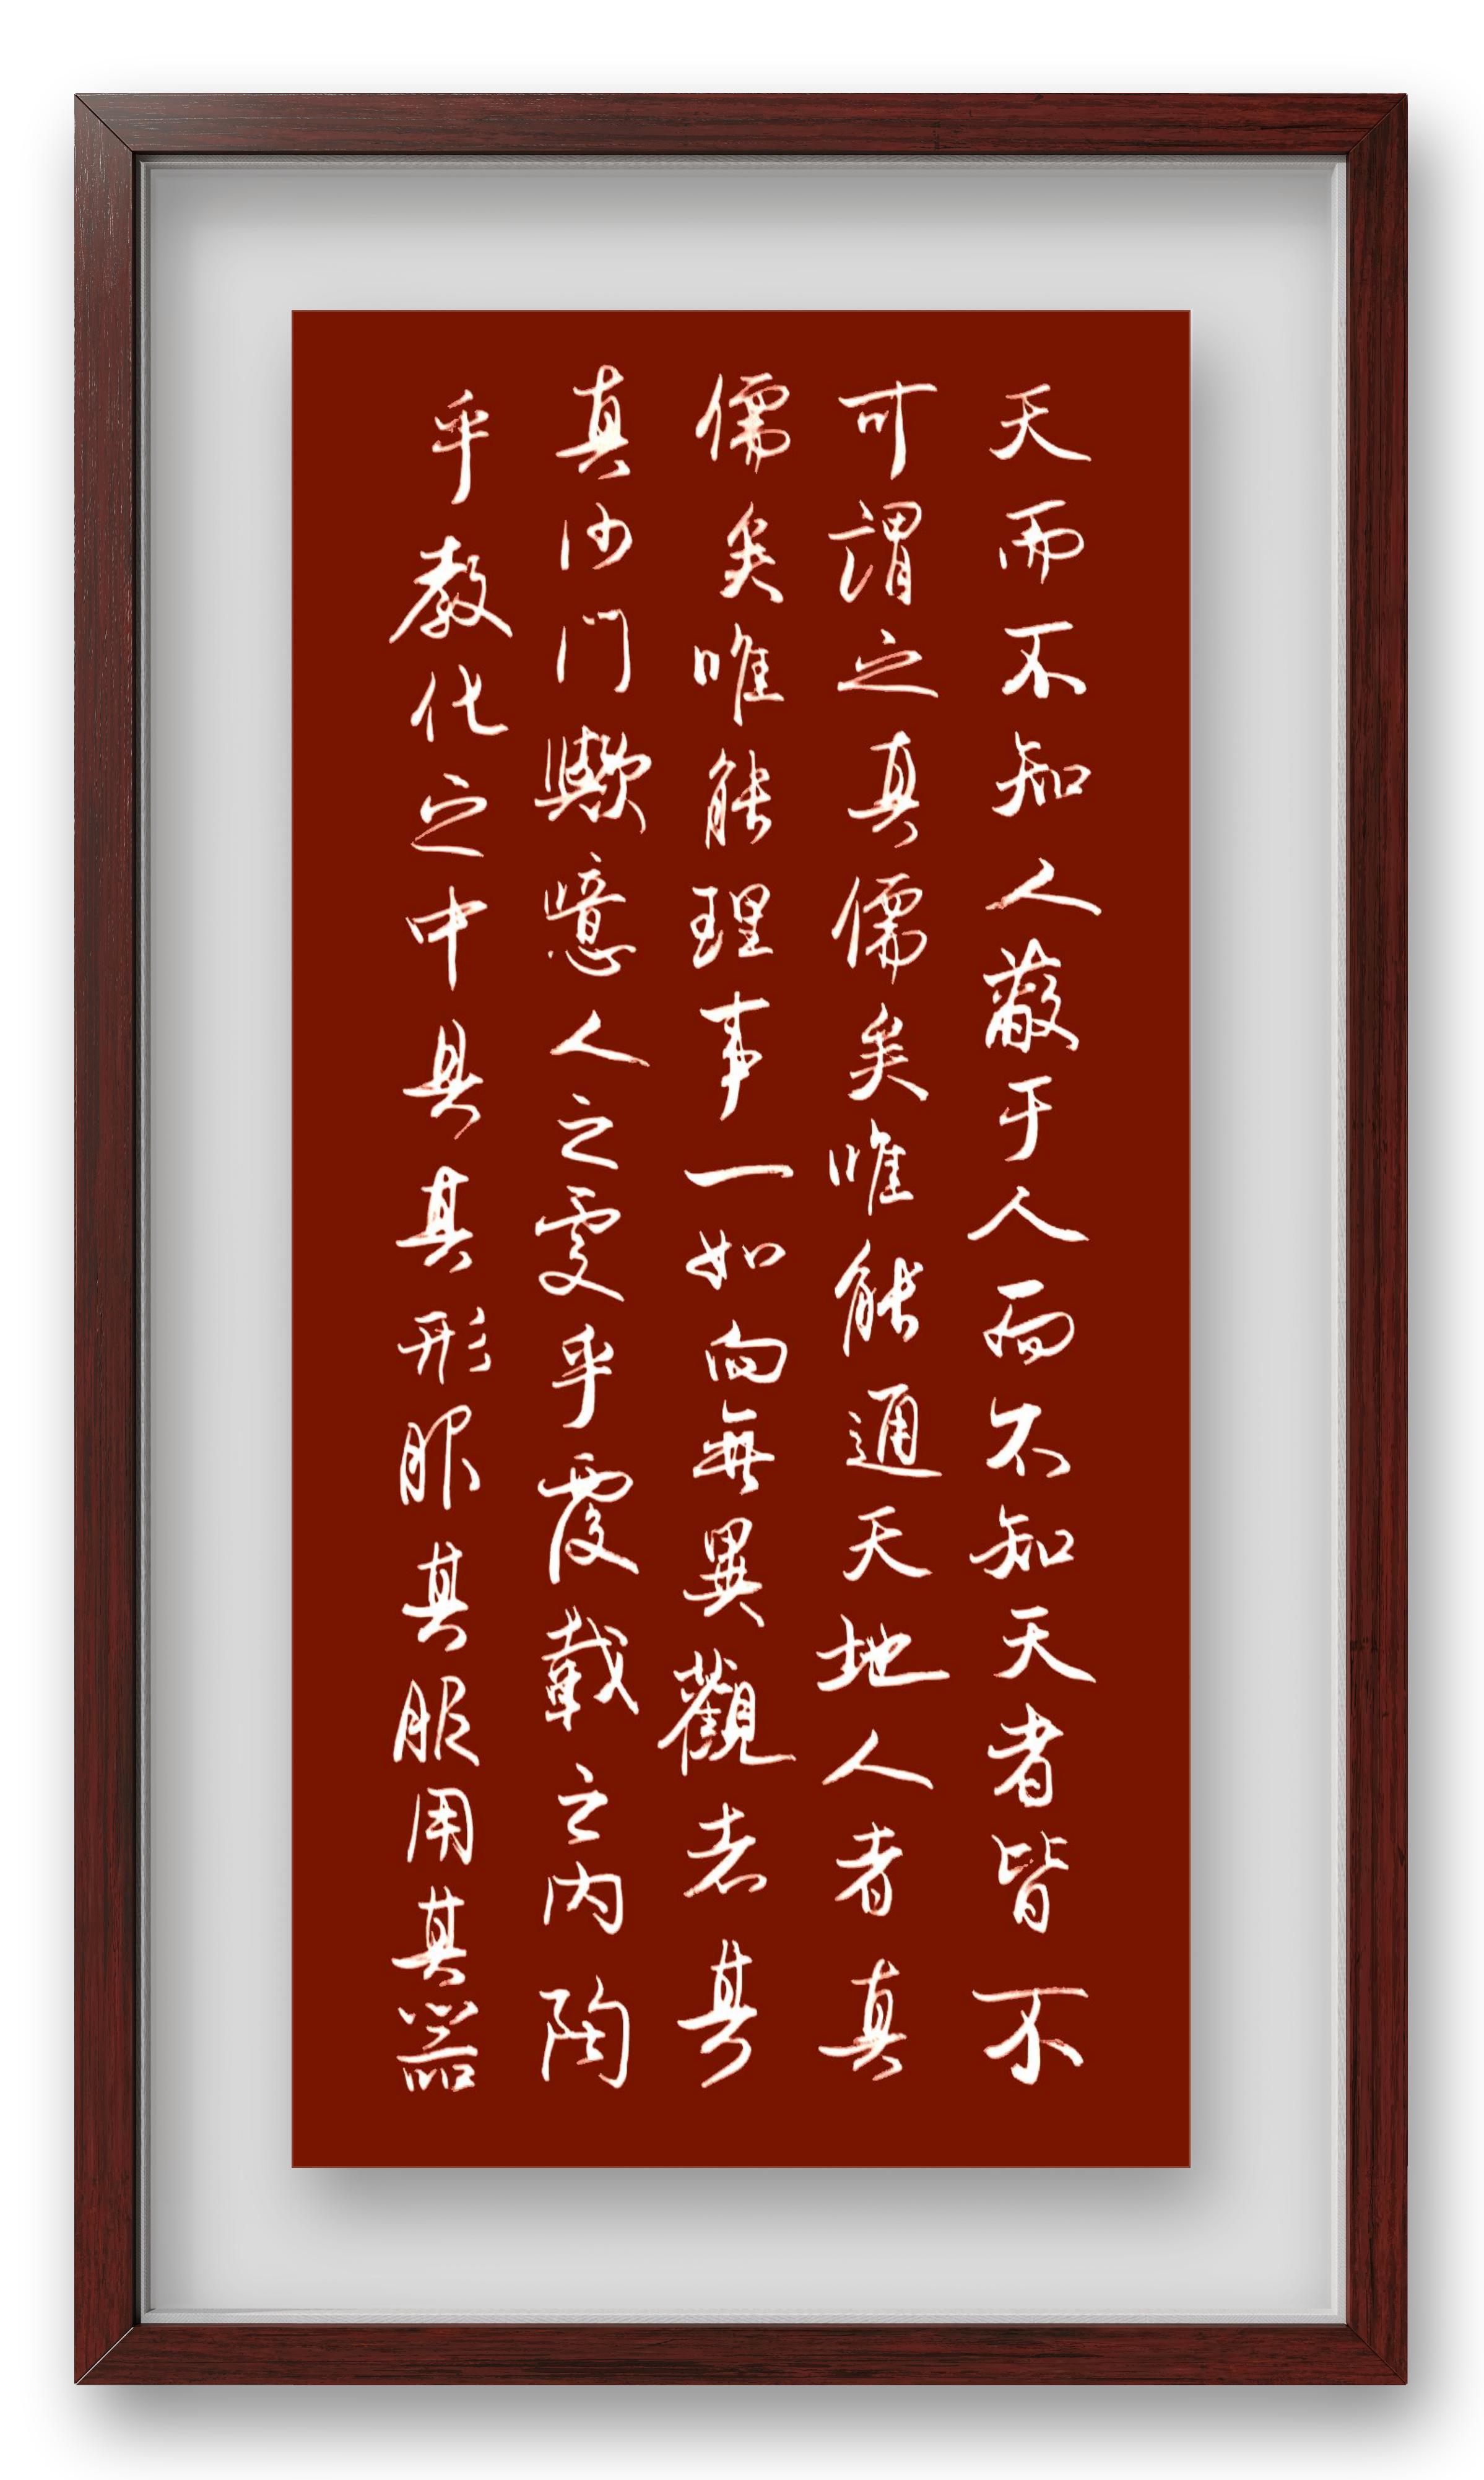 天而不知人蔽于人而不知天者皆不
可謂之真儒矣唯能通天地人者真
儒矣唯能理事一如向無異觀者其
真沙門歟噫人之處乎覆載之内陶
乎教化之中具其形服其服用其器